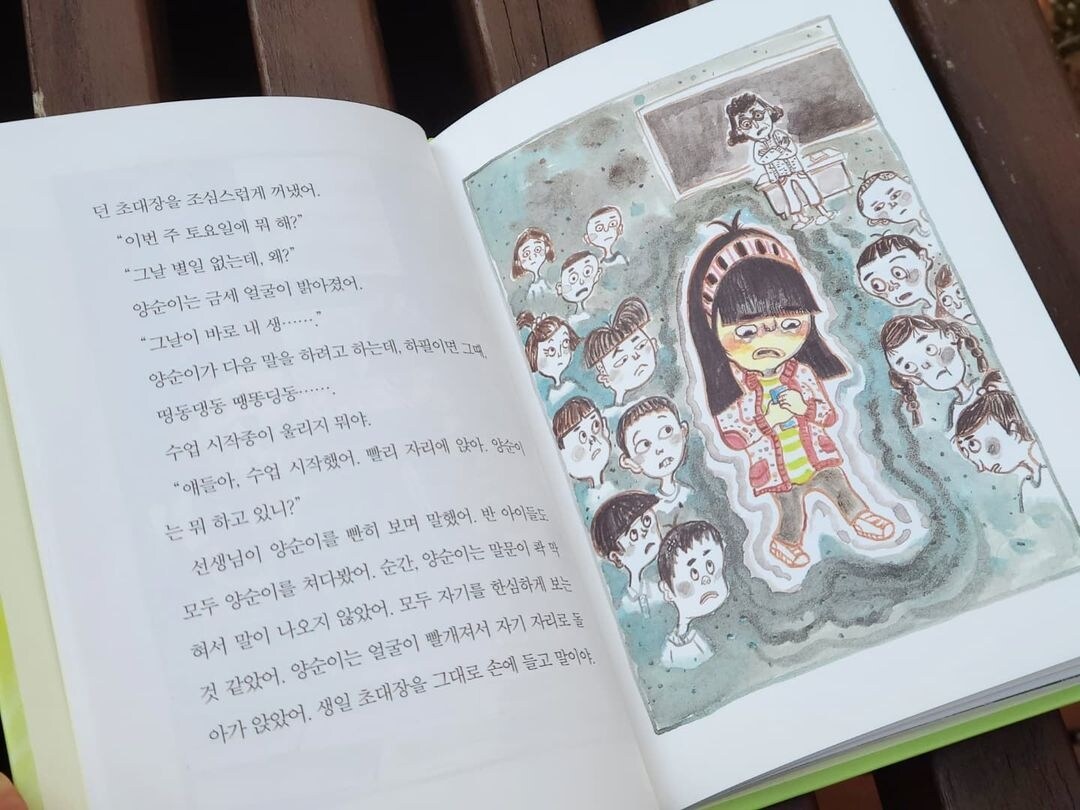 던 초대장을 조심스럽게 꺼냈어.
“이번 주 토요일에 뭐 해?”
“그날 별일 없는데, 왜?”
양순이는 금세 얼굴이 밝아졌어.
“그날이 바로 내 생…….”
양순이가 다음 말을 하려고 하는데, 하필이면 그때,
띵동댕동 땡똥딩동…….
수업 시작종이 울리지 뭐야.
“얘들아, 수업 시작했어. 빨리 자리에 앉아. 양순이
는 뭐 하고 있니?”
선생님이 양순이를 빤히 보며 말했어. 반 아이들도
모두 양순이를 쳐다봤어. 순간, 양순이는 말문이 콱 막
혀서 말이 나오지 않았어. 모두 자기를 한심하게 보는
것 같았어. 양순이는 얼굴이 빨개져서 자기 자리로 돌
아가 앉았어. 생일 초대장을 그대로 손에 들고 말이야.